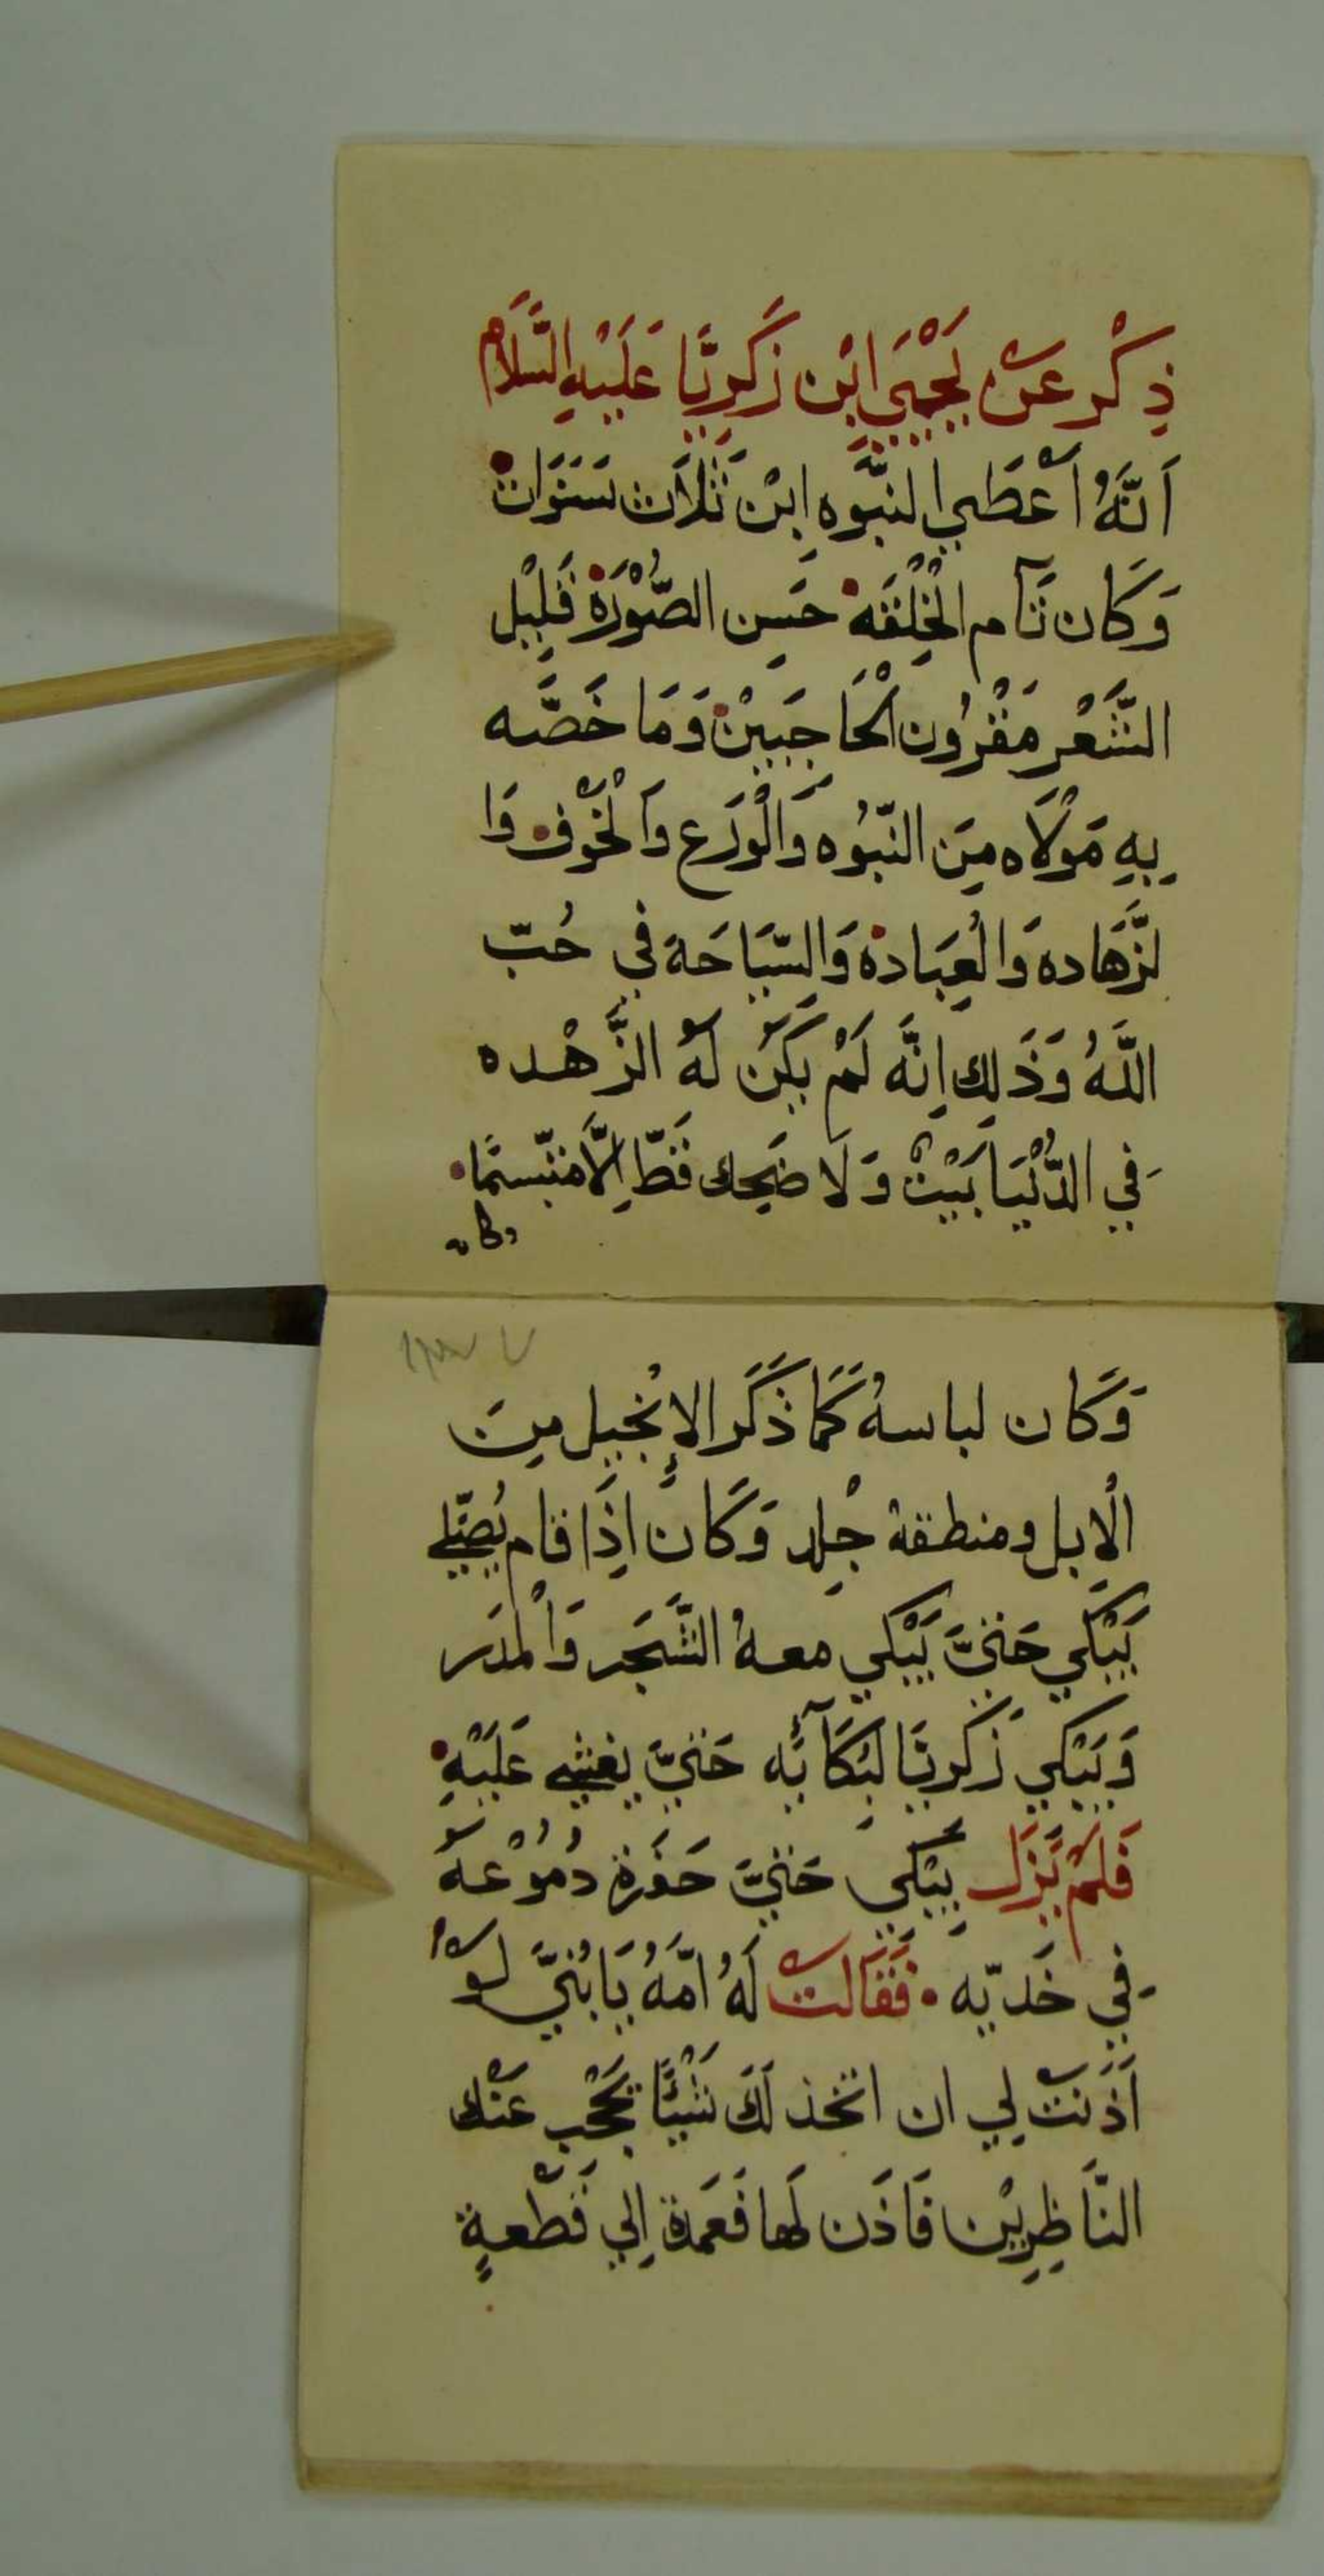 ذِكْر عَنْ يَحْيَي ابْن زَكَرِيَّا عَلَيْهِ السَّلَام
اَنَّهُ اَعْطَي النبَّوه اِبْن ثَلَاَث سَنَوَات
وَكَان تَآم الْخِلْقَه حَسِن الصُّوْرَة قَلِيْل
الشَّعْر مَقْرُون الْحَاجَبِيْن وَمَا خَصَّه
بِهِ مَوْلَاه مِنَ النّبُوه وَالْوَرَع وَالْخَوْف وَا
لزَّهَاده وَالْعِبَادة وَالسّيَاحَة في حُبّ
اللَّهُ وَذَلِك اِنَّه لَمْ يَكُنْ لَهُ الزَّهْده
فِي الدُّنْيَا بَيْتْ وَلَا ضَحِك قَطّ اِلَّا متبّسمًا
وكان
وَكَان لباسهُ كَمَا ذَكَر الإِنْجيل مِنَ
الْاِبل ومنطقة جْلِد وَكَانَ اِذَا قام يُصَلّي
يَبْكي حَتيَّ يَبْكي معهُ الشَّجَر وَالْمدَر
وَيَبْكي زَكَريَا لِبُكَآئِه حَتيَّ يغشي عَلَيْهِ
فَلَمْ يَزَل يَبْكي حَتيَّ حَفَرة دُمُوْعهُ
فِي خَديّه فَقَالَتْ لَهُ امّهُ يَا بُنيَّ لَوْ
اَذَنتْ لِي ان اتخذ لَكَ شَيْئًا يَحْجب عَنْك
النَّاظِرِيْن فَاذَن لَها فَعَمَدة اِلي قَطْعةٍ